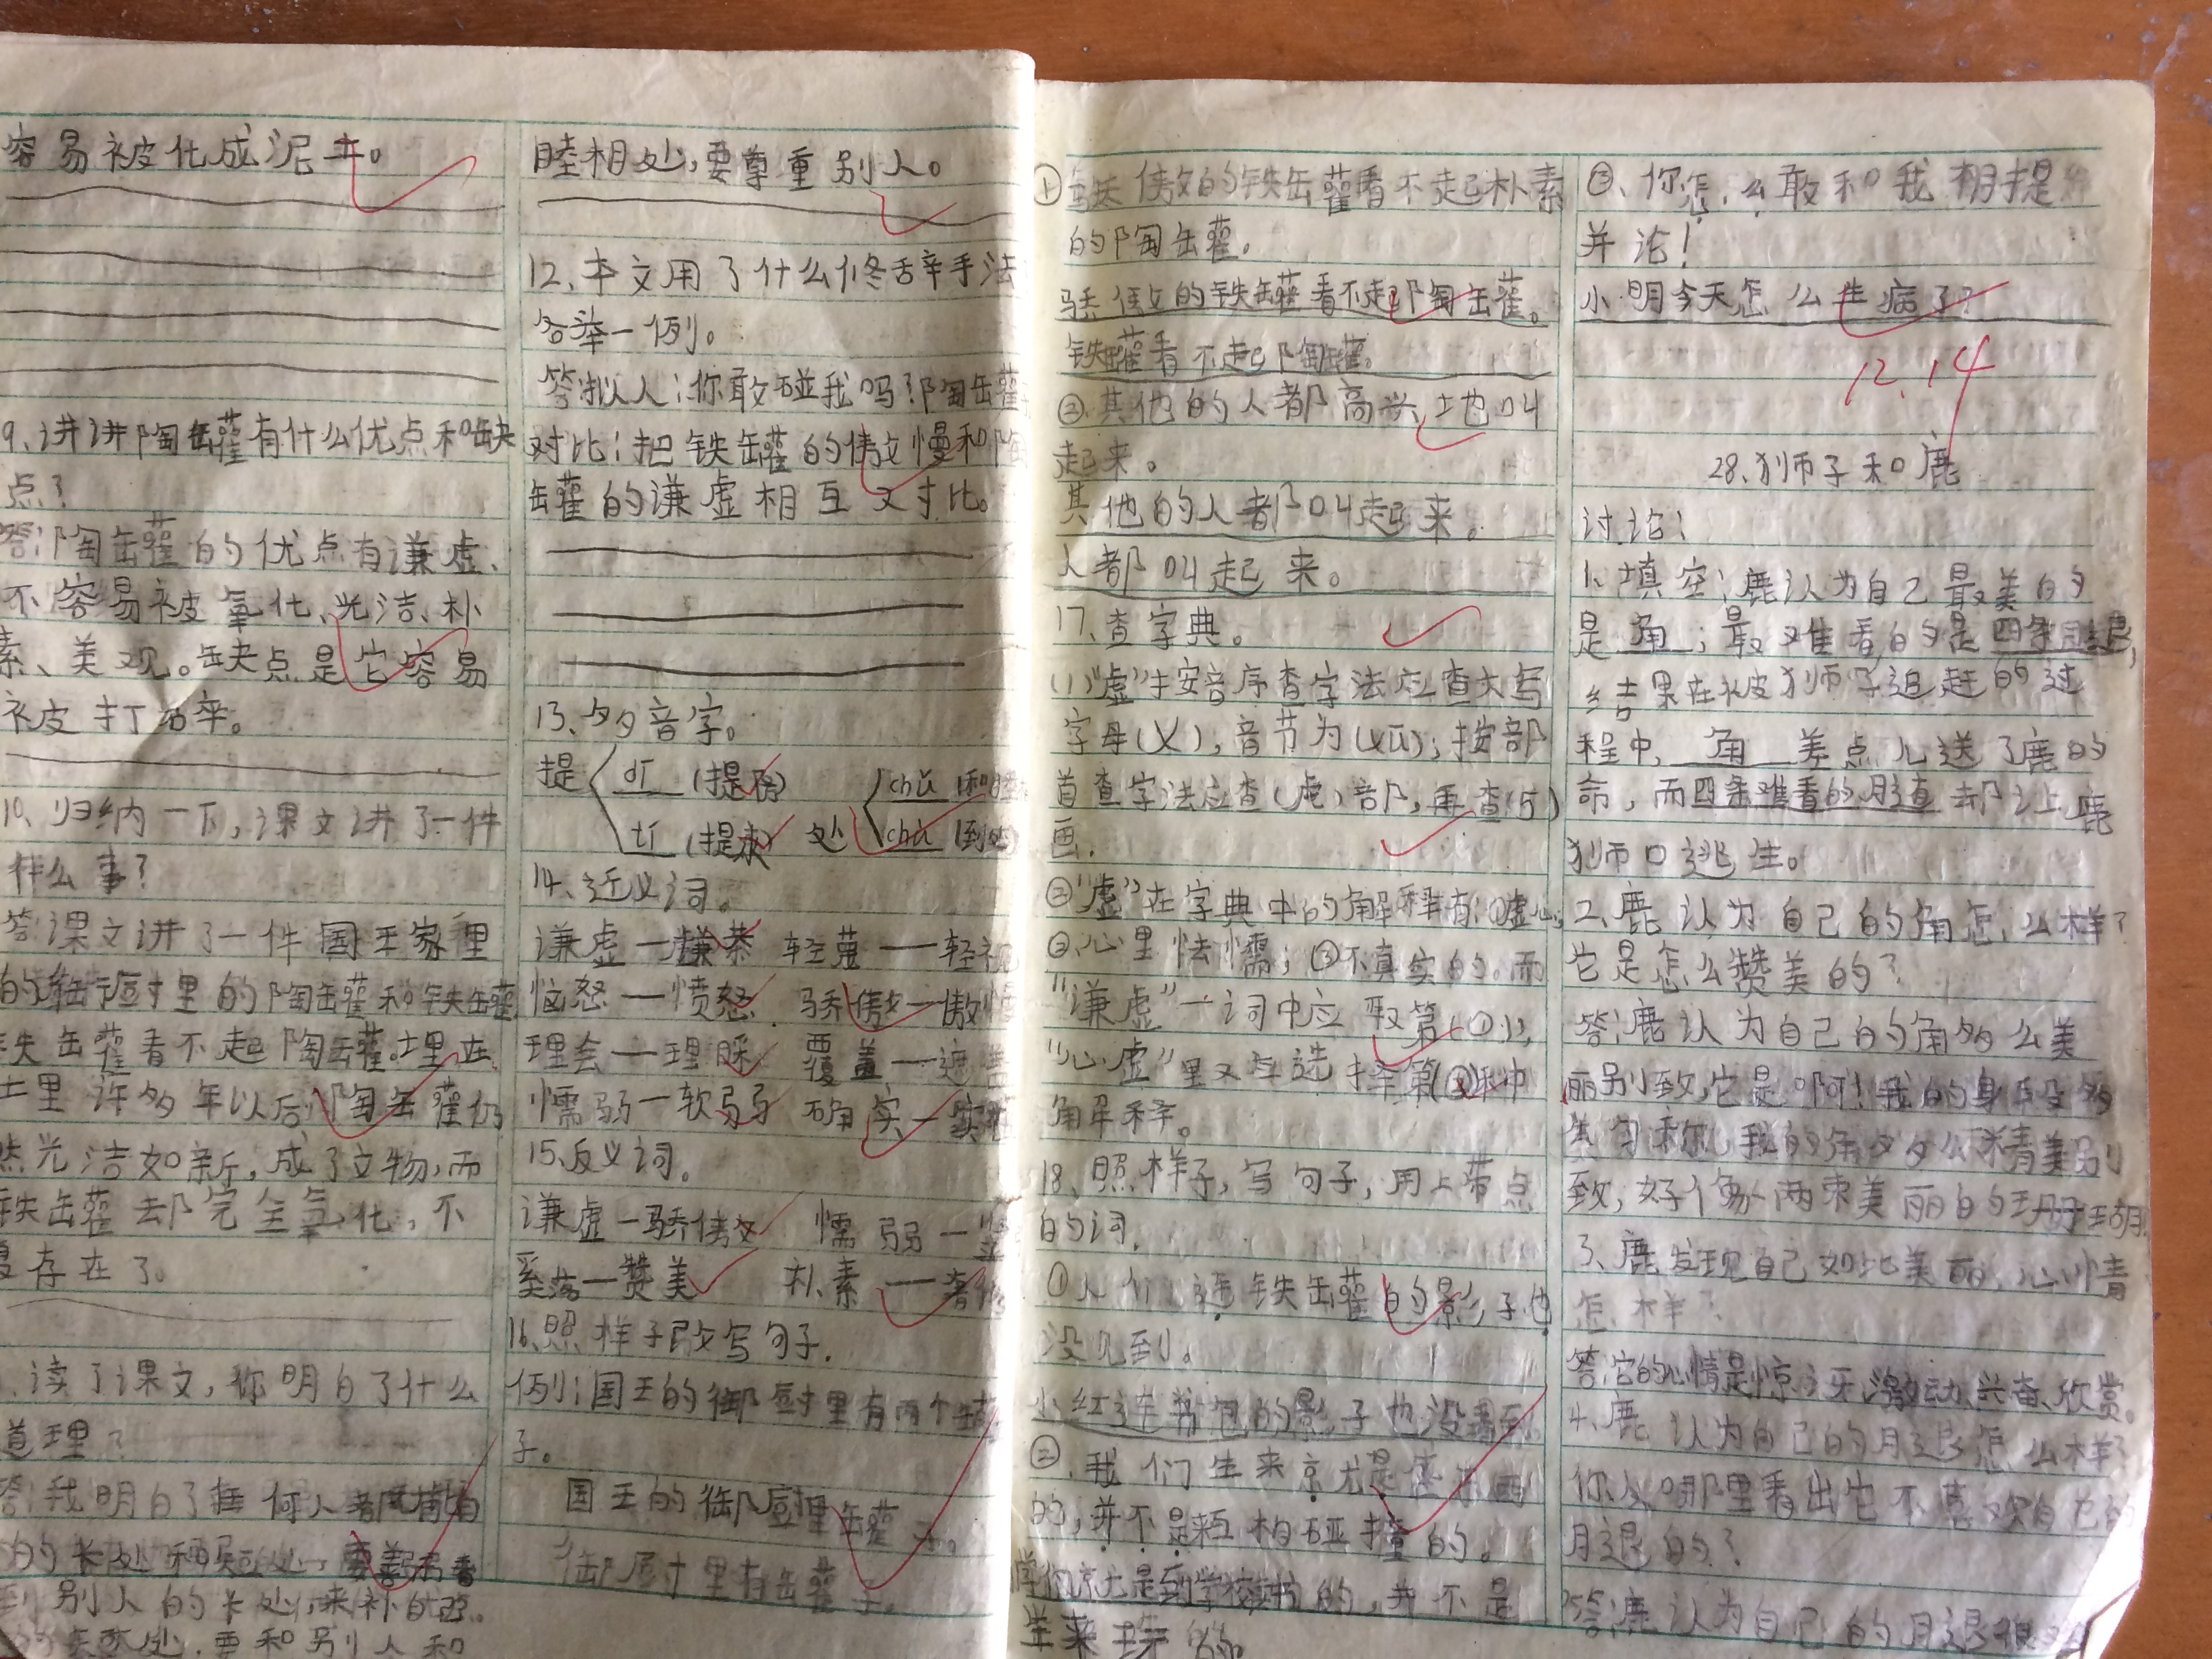 容易被化成泥土。
9、讲讲陶罐有什么优点和缺
点?
答:陶罐的优点有谦虚、
不容易被氧化、光洁、朴
素、美观。缺点是它容易
被打碎。
10、归纳一下,课文讲了一件
什么事?
答:课文讲了一件国王家里
的御厨里的陶罐和铁罐
铁罐看不起陶罐。埋在
土里许多年以后,陶罐仍
然光洁如新,成了文物,而
铁罐却完全氧化,不
复存在了。
读了课文,你明白了什么
道理?
答:我明白了任何人都有
的长处和短处,要善于看
到别人的长处,来补自己
要和别人和
睦相处,要尊重别人。
12、本文用了什么修辞手法
各举一例。
答:拟人:你敢碰我吗?陶罐
对比:把铁罐的傲慢和陶
罐的谦虚相互对比。
13、多音字。
提 dī (提防)
tí (提水)
处 chǔ (和睦
chù (到处
14、近义词。
谦虚—谦恭 轻蔑——轻视
恼怒—愤怒 骄傲—傲慢
理会—理睬 覆盖—遮盖
懦弱—软弱 确实—实
15、反义词。
谦虚—骄傲 懦弱—坚
奚落—赞美 朴素——奢
16、照样子改写句子.
例:国王的御厨里有两个罐
子。
国王的御厨里罐子。
御厨里有罐子。
①骄傲的铁罐看不起朴素
的陶罐。
骄傲的铁罐看不起陶罐。
铁罐看不起陶罐。
②其他的人都高兴地叫
起来。
其他的人都叫起来。
人都叫起来。
17、查字典。
(1)“虚”按音序查字法应查大写
字母(X),音节为(xū);按部
首查字法应查(虍)部,再查(5)
画.
②“虚”在字典中的解释有:①虚心;
②心里怯懦;③不真实的。而
“谦虚”一词中应取第(①),
“心虚”里又应选择第(②)种
解释。
18、照样子,写句子,用上带点
的词.
①人们连铁罐的影子也
没见到。
小红连书包的影子也没看到
②、我们生来就是盛东西
的,并不是来互相碰撞的。
学们就是到学校读书的,并不是
来玩的
③、你怎么敢和我相提
并论!
小明今天怎么生病了?
12.14
28、狮子和鹿
讨论:
1、填空:鹿认为自己最美的
是角;最难看的是四条腿,
结果在被狮子追赶的过
程中,角差点儿送了鹿的
命,而四条难看的腿却让鹿
狮口逃生。
2、鹿认为自己的角怎么样?
它是怎么赞美的?
答:鹿认为自己的角多么美
丽别致,它是啊!我的身段多
么匀称,我的角多么精美别
致,好像两束美丽的珊瑚
3、鹿发现自己如此美丽,心情
怎样?
答:它的心情是惊讶、激动、兴奋、欣赏。
4、鹿认为自己的腿怎么样?
你从哪里看出它不喜欢自己的
腿的?
答:鹿认为自己的腿很